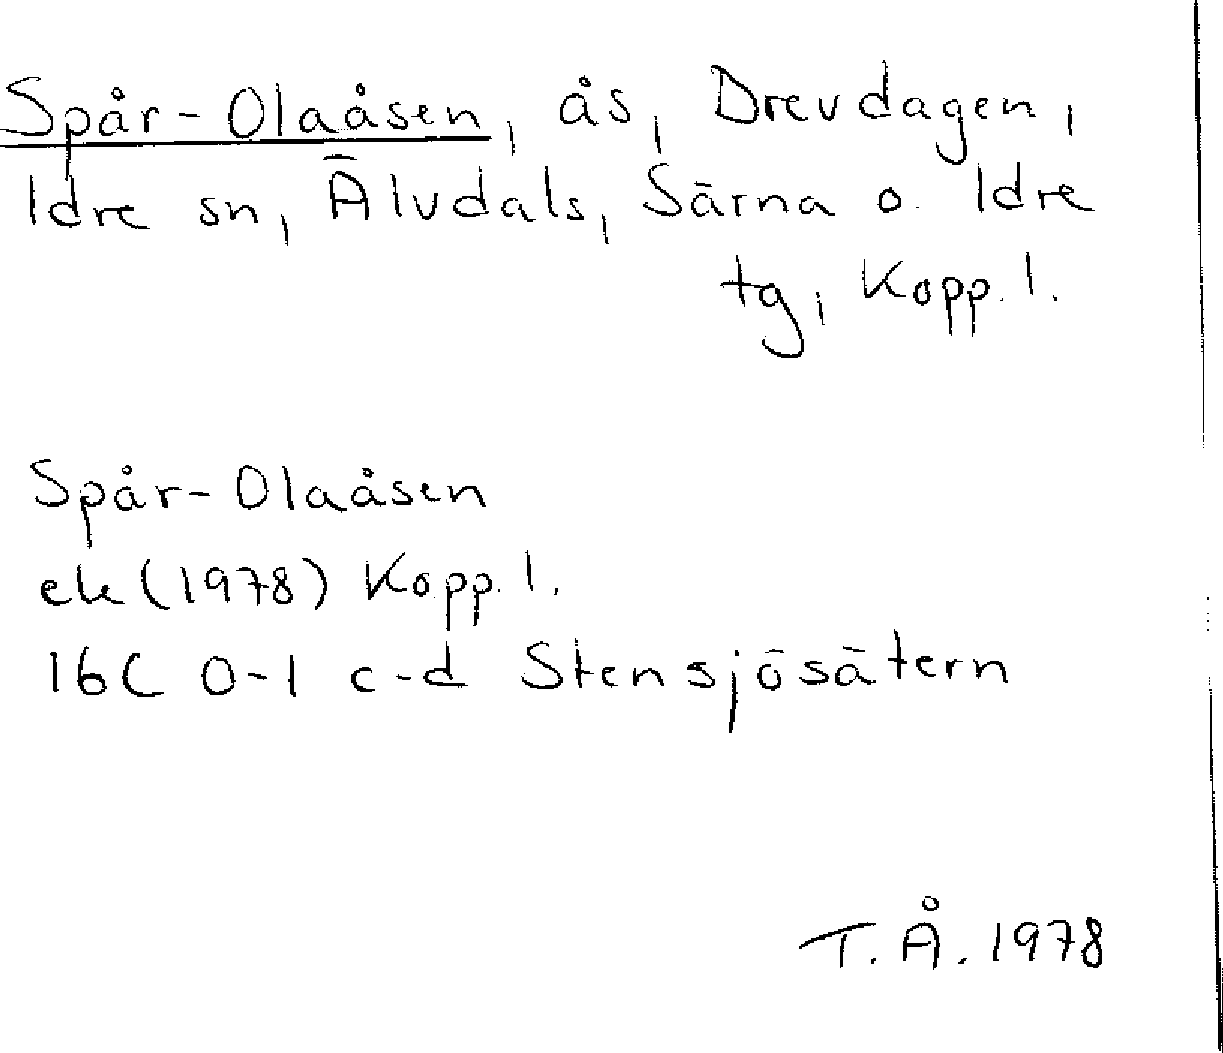 Spår-Olaåsen, ås, Drevdagen,
Idre sn, Älvdals, Särna o. Idre
tg, Kopp. l.
Spår-Olaåsen
ek (1978) Kopp. l.
16C 0-1 c-d Stensjösätern
T. Å. 1978